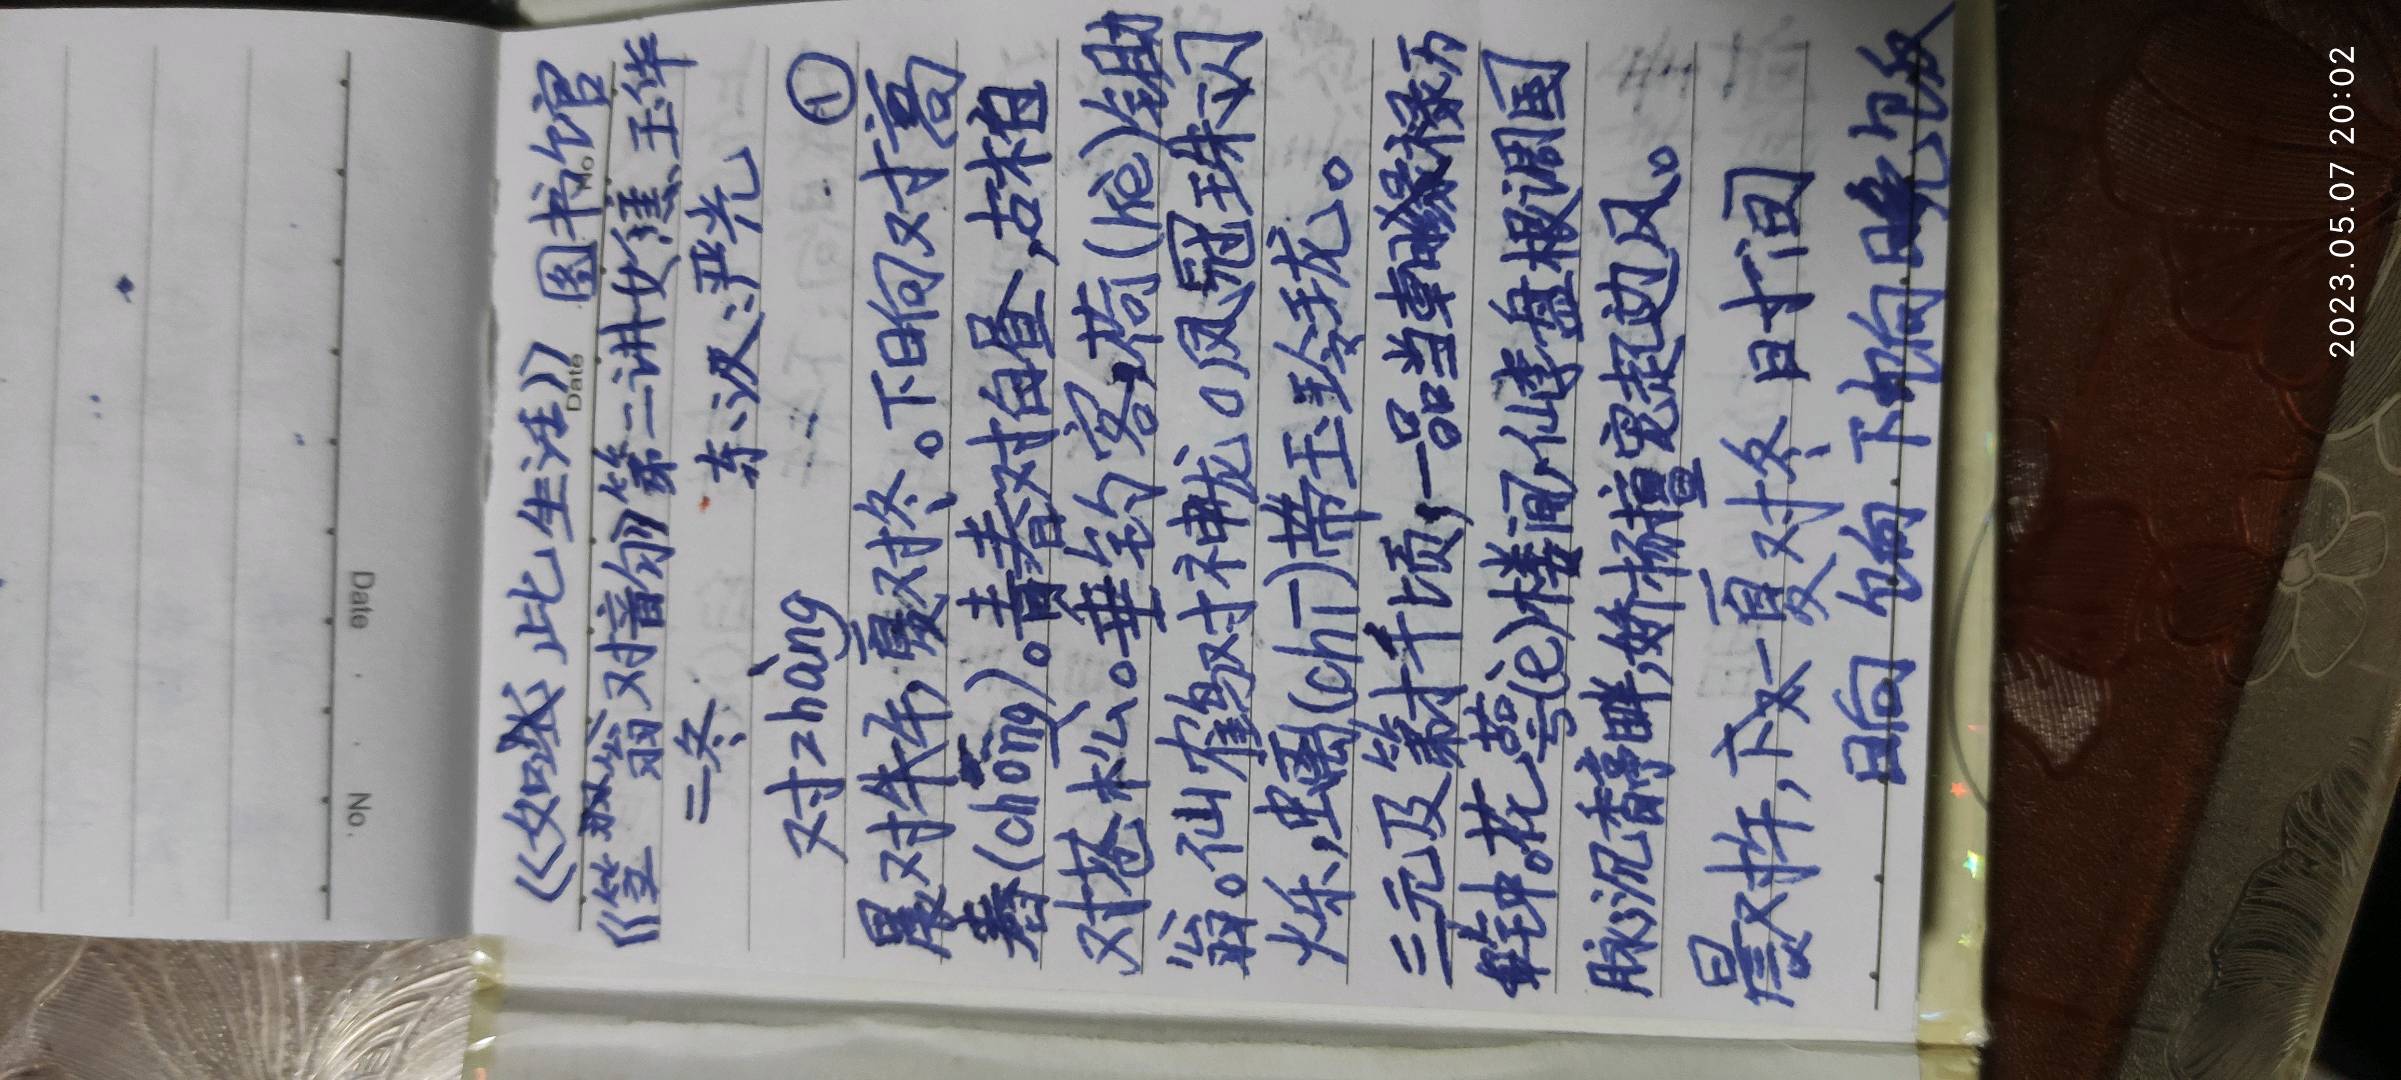 《如歌此生活》 图书官
《笠翁对韵》第二讲女焦玉华
二冬 东、汉:严光
对zhàng ①
晨对午,夏对冬。下晌对高
舂(chōng)。青春对白昼,古柏
对苍松。垂钓客,荷(hè)锄
翁。仙鹤对神龙。凤冠珠闪
烁,螭(chī)带玉玲珑。
三元及第才千顷,一品当朝禄万
钟。花萼(è)楼间,仙李盘根调国
脉,沉香亭畔,娇杨擅宠起边风。
晨对午,下文一夏对冬 日扩间
日向 下晌
Date
No.
Date
No.
2023.05.07 20:02